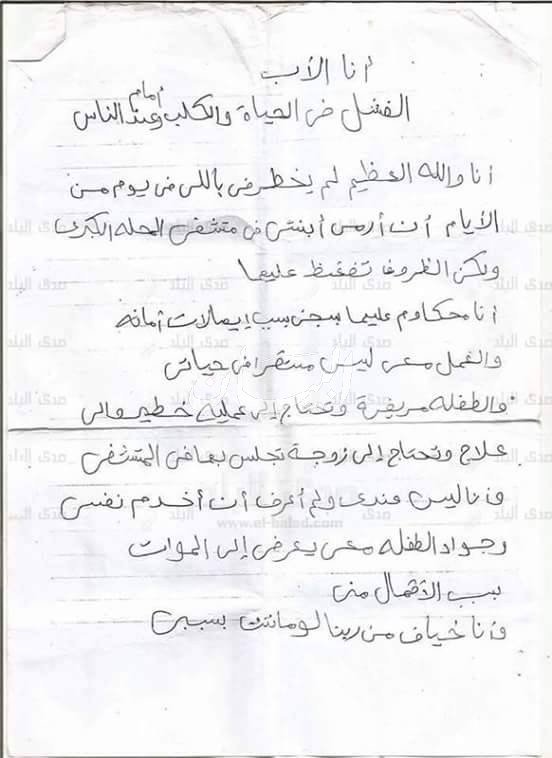 أنا الأب
أمام
الفشل في الحياة والكلب وعند الناس
أنا والله العظيم لم يخطر في باللى في يوم من
الأيام أن أرمى أبنتى في متشفى المحله الكبرى
ولكن الظروفا تفغظ عليها
أنا محكاوم عليها بسجن بسب إيصالات أمانه
والعمل معى ليس متقرا فى حياتى
والطفله مريضة وتحتاج إلى عمليه خطير والى
علاج وتحتاج إلى زوجة تجلس بها فى المتشفى
وأنا ليس عندى ولم أعرف أن أخدم نفسى
وجواد الطفله معى يعرض إلى الموات
ببب الأهمال منى
وأنا خياف من ربنا لو ماتت بسبى
صدى البلد
www.el-balad.com